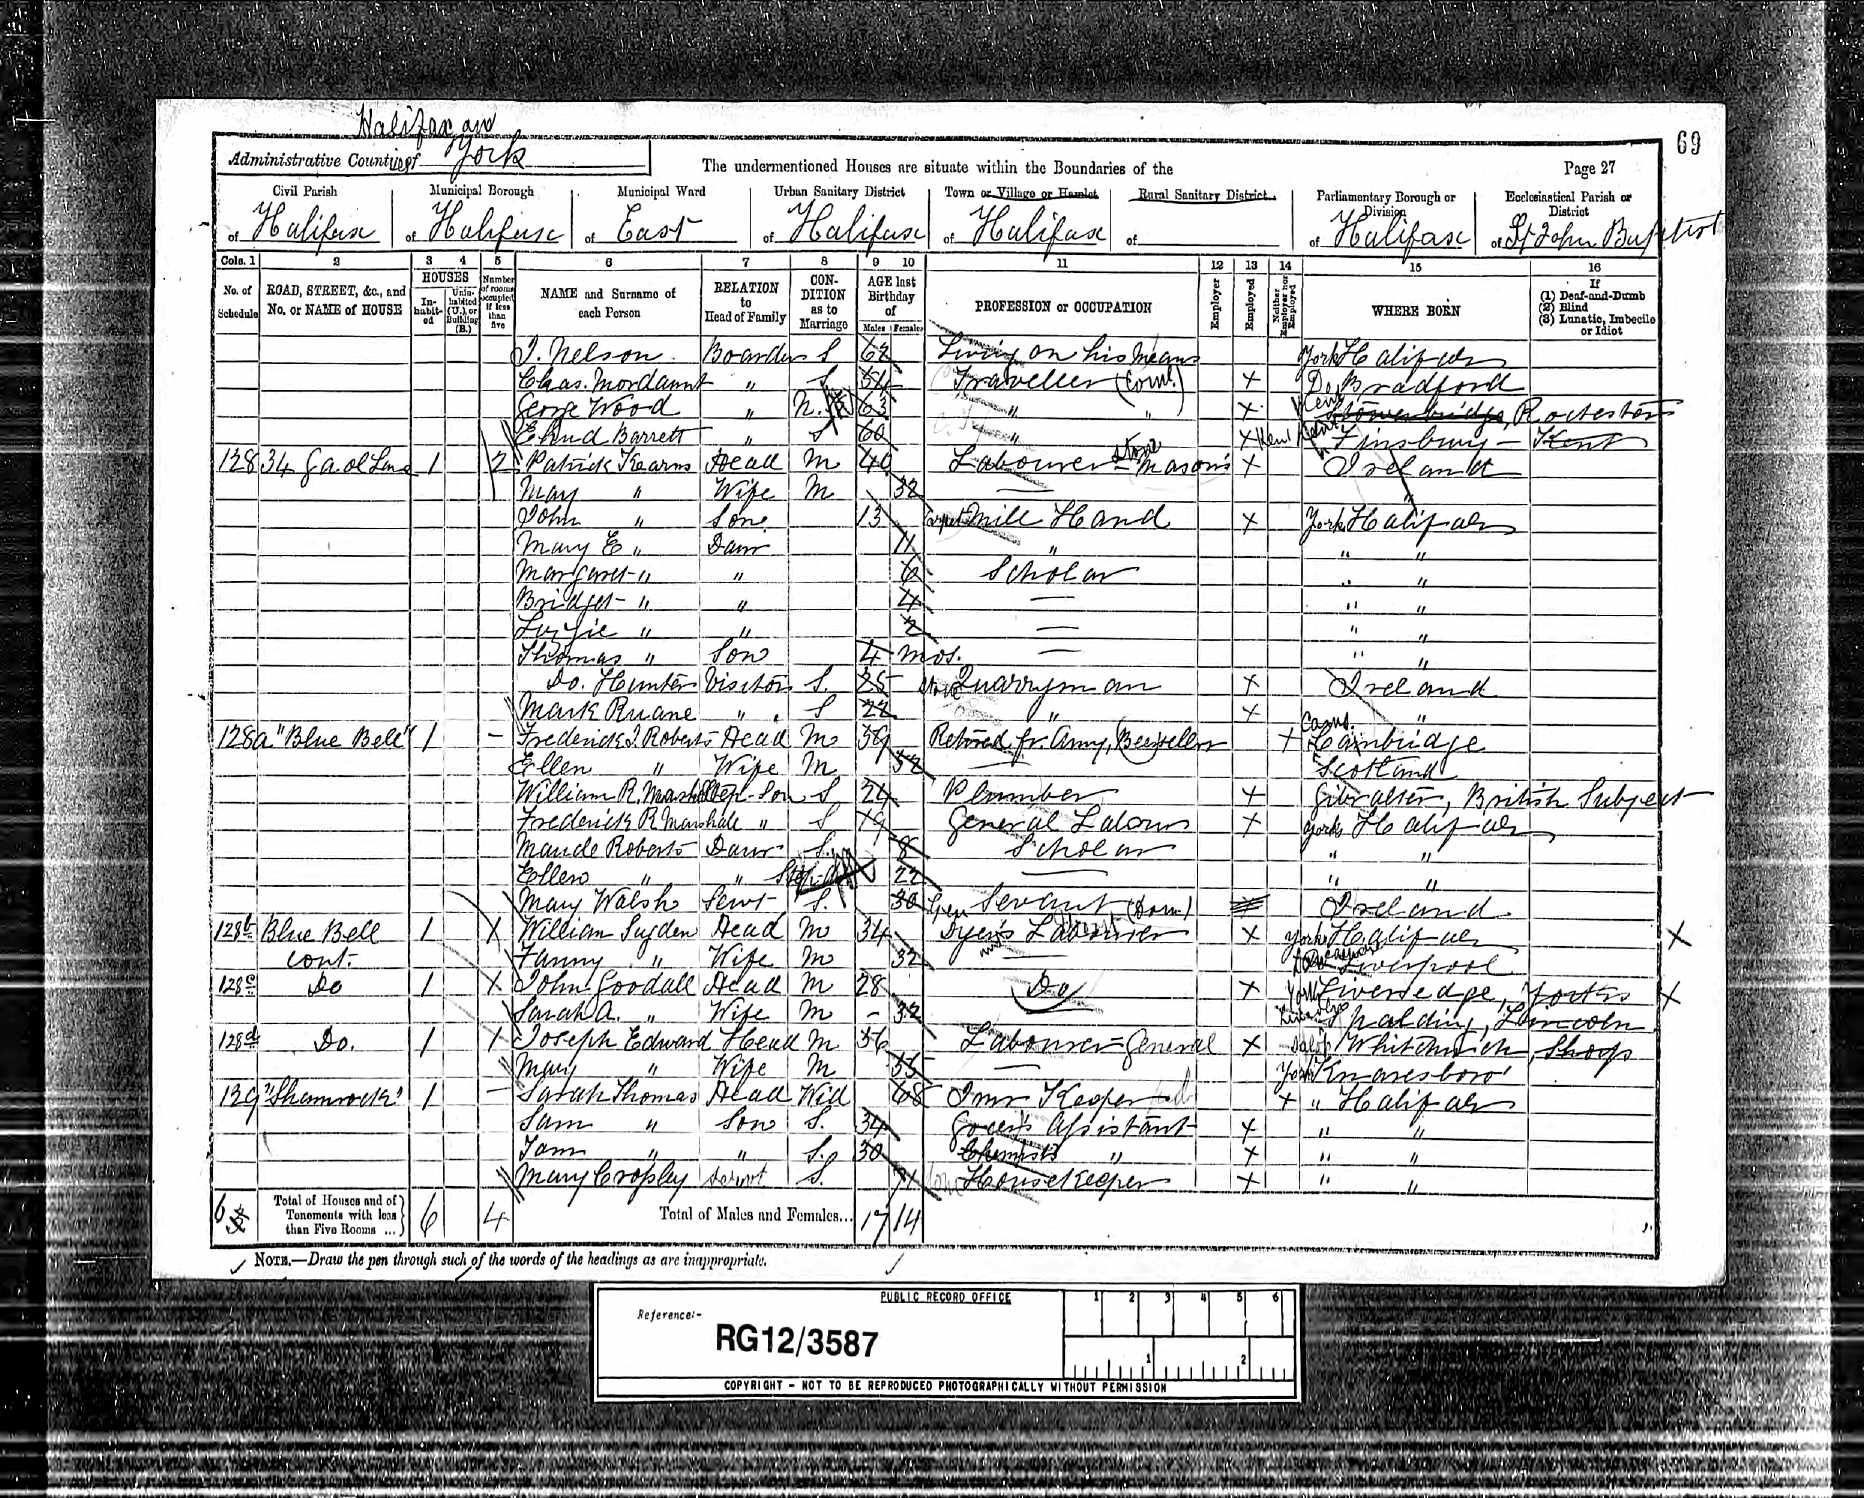 Halifax and
69
Administrative Counties of York
The undermentioned Houses are situate within the Boundaries of the
Page 27
Civil Parish of Halifax
Municipal Borough of Halifax
Municipal Ward of East
Urban Sanitary District of Halifax
Town or Village or Hamlet of Halifax
Rural Sanitary District of
Parliamentary Borough or Division of Halifax
Ecclesiastical Parish or District of St John Baptist
Cols. 1 2 3 4 5 6 7 8 9 10 11 12 13 14 15 16
No. of Schedule
ROAD, STREET, &c., and No. or NAME of HOUSE
HOUSES
In-habit-ed
Unin-habited (U.), or Building (B.)
Number of rooms occupied if less than five
NAME and Surname of each Person
RELATION to Head of Family
CON-DITION as to Marriage
AGE last Birthday of
Males Females
PROFESSION or OCCUPATION
Employer
Employed
Neither Employer nor Employed
WHERE BORN
If (1) Deaf-and-Dumb (2) Blind (3) Lunatic, Imbecile or Idiot
J. Nelson Boarder S 62 Living on his Means York Halifax
Chas. Mordaunt " S 54 Traveller (Com!) X Do Bradford
George Wood " 63 " " X Kent Rochester
Ehud Barrett " S 60 " X Kent Finsbury - Kent
128 34 Gaol Lane 1 2 Patrick Kearns Head M 40 Labourer Stone Mason's X Ireland
Mary " Wife M 32 — "
John " Son 13 Carpet Mill Hand X York Halifax
Mary E " Daur 11 " " "
Margaret " " 6 Scholar " "
Bridget " " 4 — " "
Lizzie " " 2 — " "
Thomas " Son 4 mos. — " "
Do. Hunter Visitor S. 25 Stone Quarryman X Ireland
Mark Ruane " S 22 " X "
128a "Blue Bell" 1 – Frederick J. Roberts Head M 39 Retired fr. Army, (Beerseller X Cams. Cambridge
Ellen " Wife M 52 — Scotland
William R. Marshall Step-Son S 24 Plumber X Gibralter, British Subject
Frederick R. Marshale " S 19 General Labour X York Halifax
Maude Roberts Daur S. 8 Scholar " "
Ellen " " Step-d 22 — " "
Mary Walsh Servt S. 30 Gen Servant (Dom) Ireland
128b Blue Bell 1 X William Sugden Head M 34 Dyer's Labourer X York Halifax X
cont. Fanny " Wife M 32 — Liverpool
128c Do 1 X John Goodall Head M 28 Do X York Liversedge, Yorks X
Sarah A. " Wife M – 32 Spalding, Lincoln
128d Do. 1 1 Joseph Edward Head M 56 Labourer General X Salop Whitchurch, Shrops
Mary " Wife M 55 — York Knaresboro'
129 "Shamrock" 1 – Sarah Thomas Head Wid 68 Inn Keeper X " Halifax
Sam " Son S. 34 Grocer's Assistant X " "
Tom " " S. 30 Chemist's " X " "
Mary Cropley Servt S. 71 Housekeeper X " "
6
Total of Houses and of Tenements with less than Five Rooms ...
6 4
Total of Males and Females... 17 14
NOTE.—Draw the pen through such of the words of the headings as are inappropriate.
PUBLIC RECORD OFFICE
Reference:-
RG12/3587
1 2 3 4 5 6
1 2
COPYRIGHT - NOT TO BE REPRODUCED PHOTOGRAPHICALLY WITHOUT PERMISSION